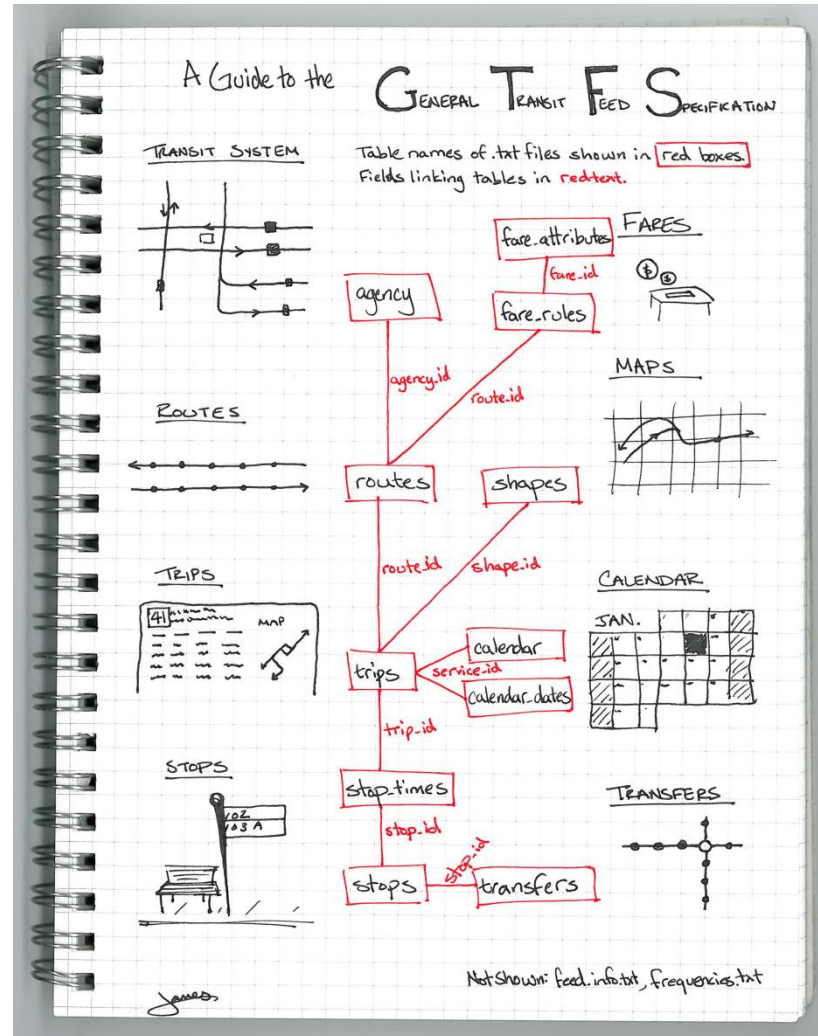 A Guide to the GENERAL TRANSIT FEED SPECIFICATION
Table names of .txt files shown in red boxes.
Fields linking tables in red text.
TRANSIT SYSTEM
FARES
fare_attributes
fare_id
fare_rules
agency
agency_id
route_id
MAPS
ROUTES
routes
shapes
route_id
shape_id
TRIPS
41
MAP
CALENDAR
JAN.
trips
service_id
calendar
calendar_dates
trip_id
STOPS
102
103 A
stop_times
stop_id
TRANSFERS
stops
stop_id
transfers
Not shown: feed_info.txt, frequencies.txt
James